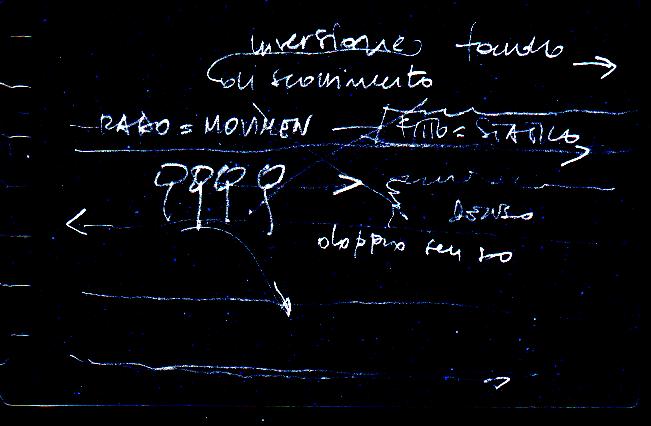 inversione
di scorrimento
RADO = MOVIMEN FITTO = STATICO
DENSO
doppio senso